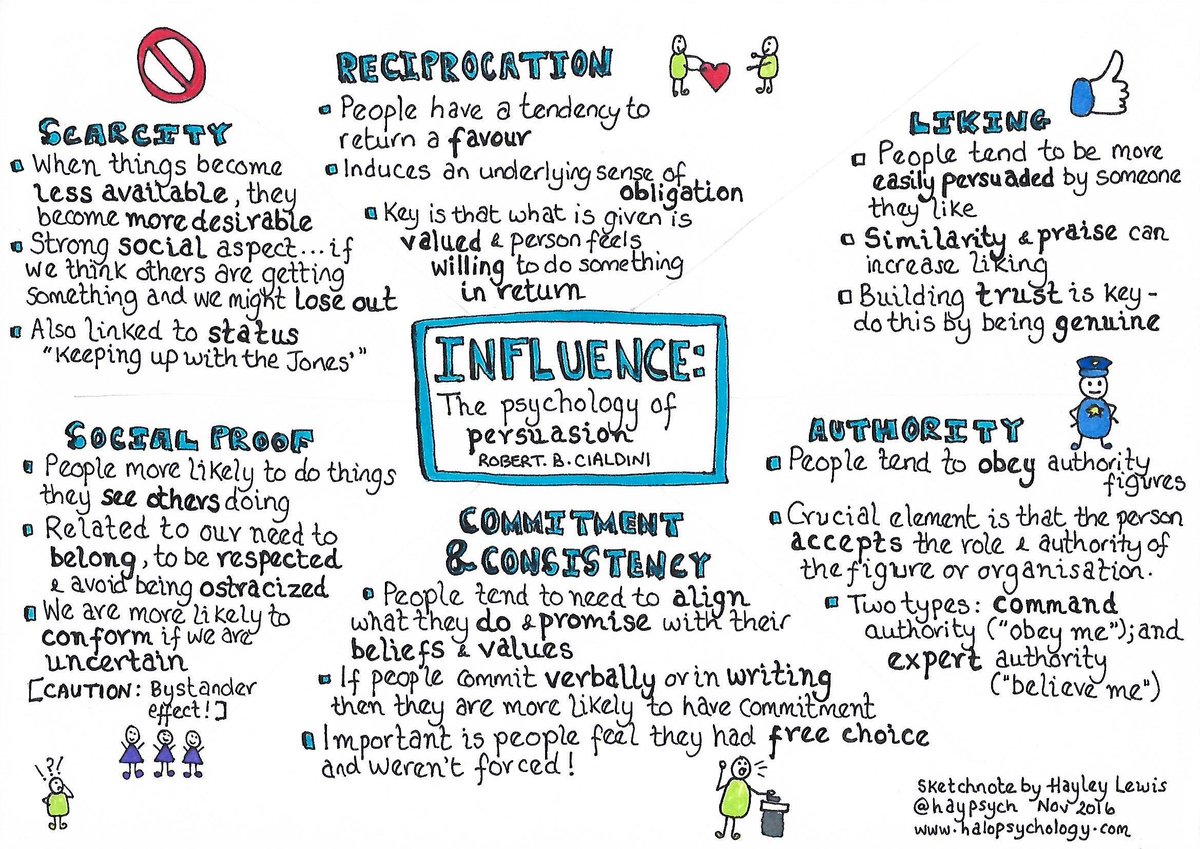 INFLUENCE:
The psychology of
persuasion
ROBERT. B. CIALDINI
SCARCITY
When things become
less available, they
become more desirable
Strong social aspect... if
we think others are getting
something and we might lose out
Also linked to status
"Keeping up with the Jones'"
RECIPROCATION
People have a tendency to
return a favour
Induces an underlying sense of
obligation
Key is that what is given is
valued & person feels
willing to do something
in return
LIKING
People tend to be more
easily persuaded by someone
they like
Similarity & praise can
increase liking
Building trust is key -
do this by being genuine
SOCIAL PROOF
People more likely to do things
they see others doing
Related to our need to
belong, to be respected
& avoid being ostracized
We are more likely to
conform if we are
uncertain
[CAUTION: Bystander
effect!]
!?!
COMMITMENT
& CONSISTENCY
People tend to need to align
what they do & promise with their
beliefs & values
If people commit verbally or in writing
then they are more likely to have commitment
Important is people feel they had free choice
and weren't forced!
AUTHORITY
People tend to obey authority
figures
Crucial element is that the person
accepts the role & authority of
the figure or organisation.
Two types: command
authority ("obey me"); and
expert authority
("believe me")
Sketchnote by Hayley Lewis
@haypsych Nov 2016
www.halopsychology.com